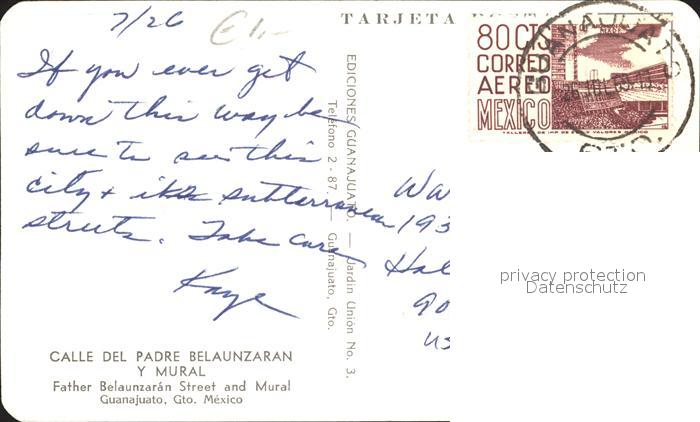 7/26
€1,-
TARJETA
If you ever get
down this way be
sure to see this
city + its subterranean
streets. Take care
Kaye
CALLE DEL PADRE BELAUNZARAN
Y MURAL
Father Belaunzarán Street and Mural
Guanajuato, Gto. México
EDICIONES GUANAJUATO. — Jardín Unión No. 3.
Teléfono 2-87. — Guanajuato, Gto.
80 CTS
CORREO
AEREO
MEXICO
TALLERES DE IMP. DE EST. Y VALORES MEXICO
Wa
193
Hol
90
US
privacy protection
Datenschutz